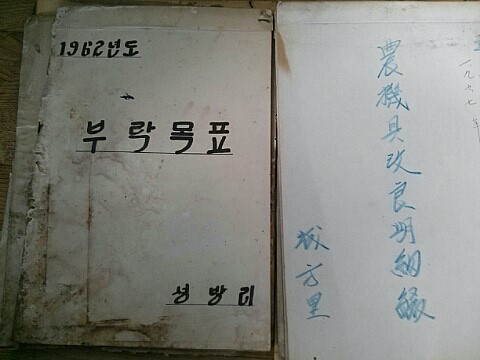 1962년도
부락목표
성방리
一九六七年
農機具改良明細綴
城方里